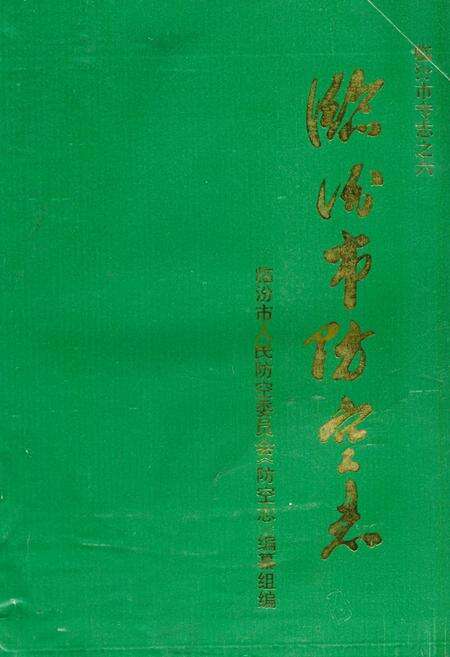 临汾市专志之六
临汾市防空志
临汾市人民防空委员会《防空志》编纂组编